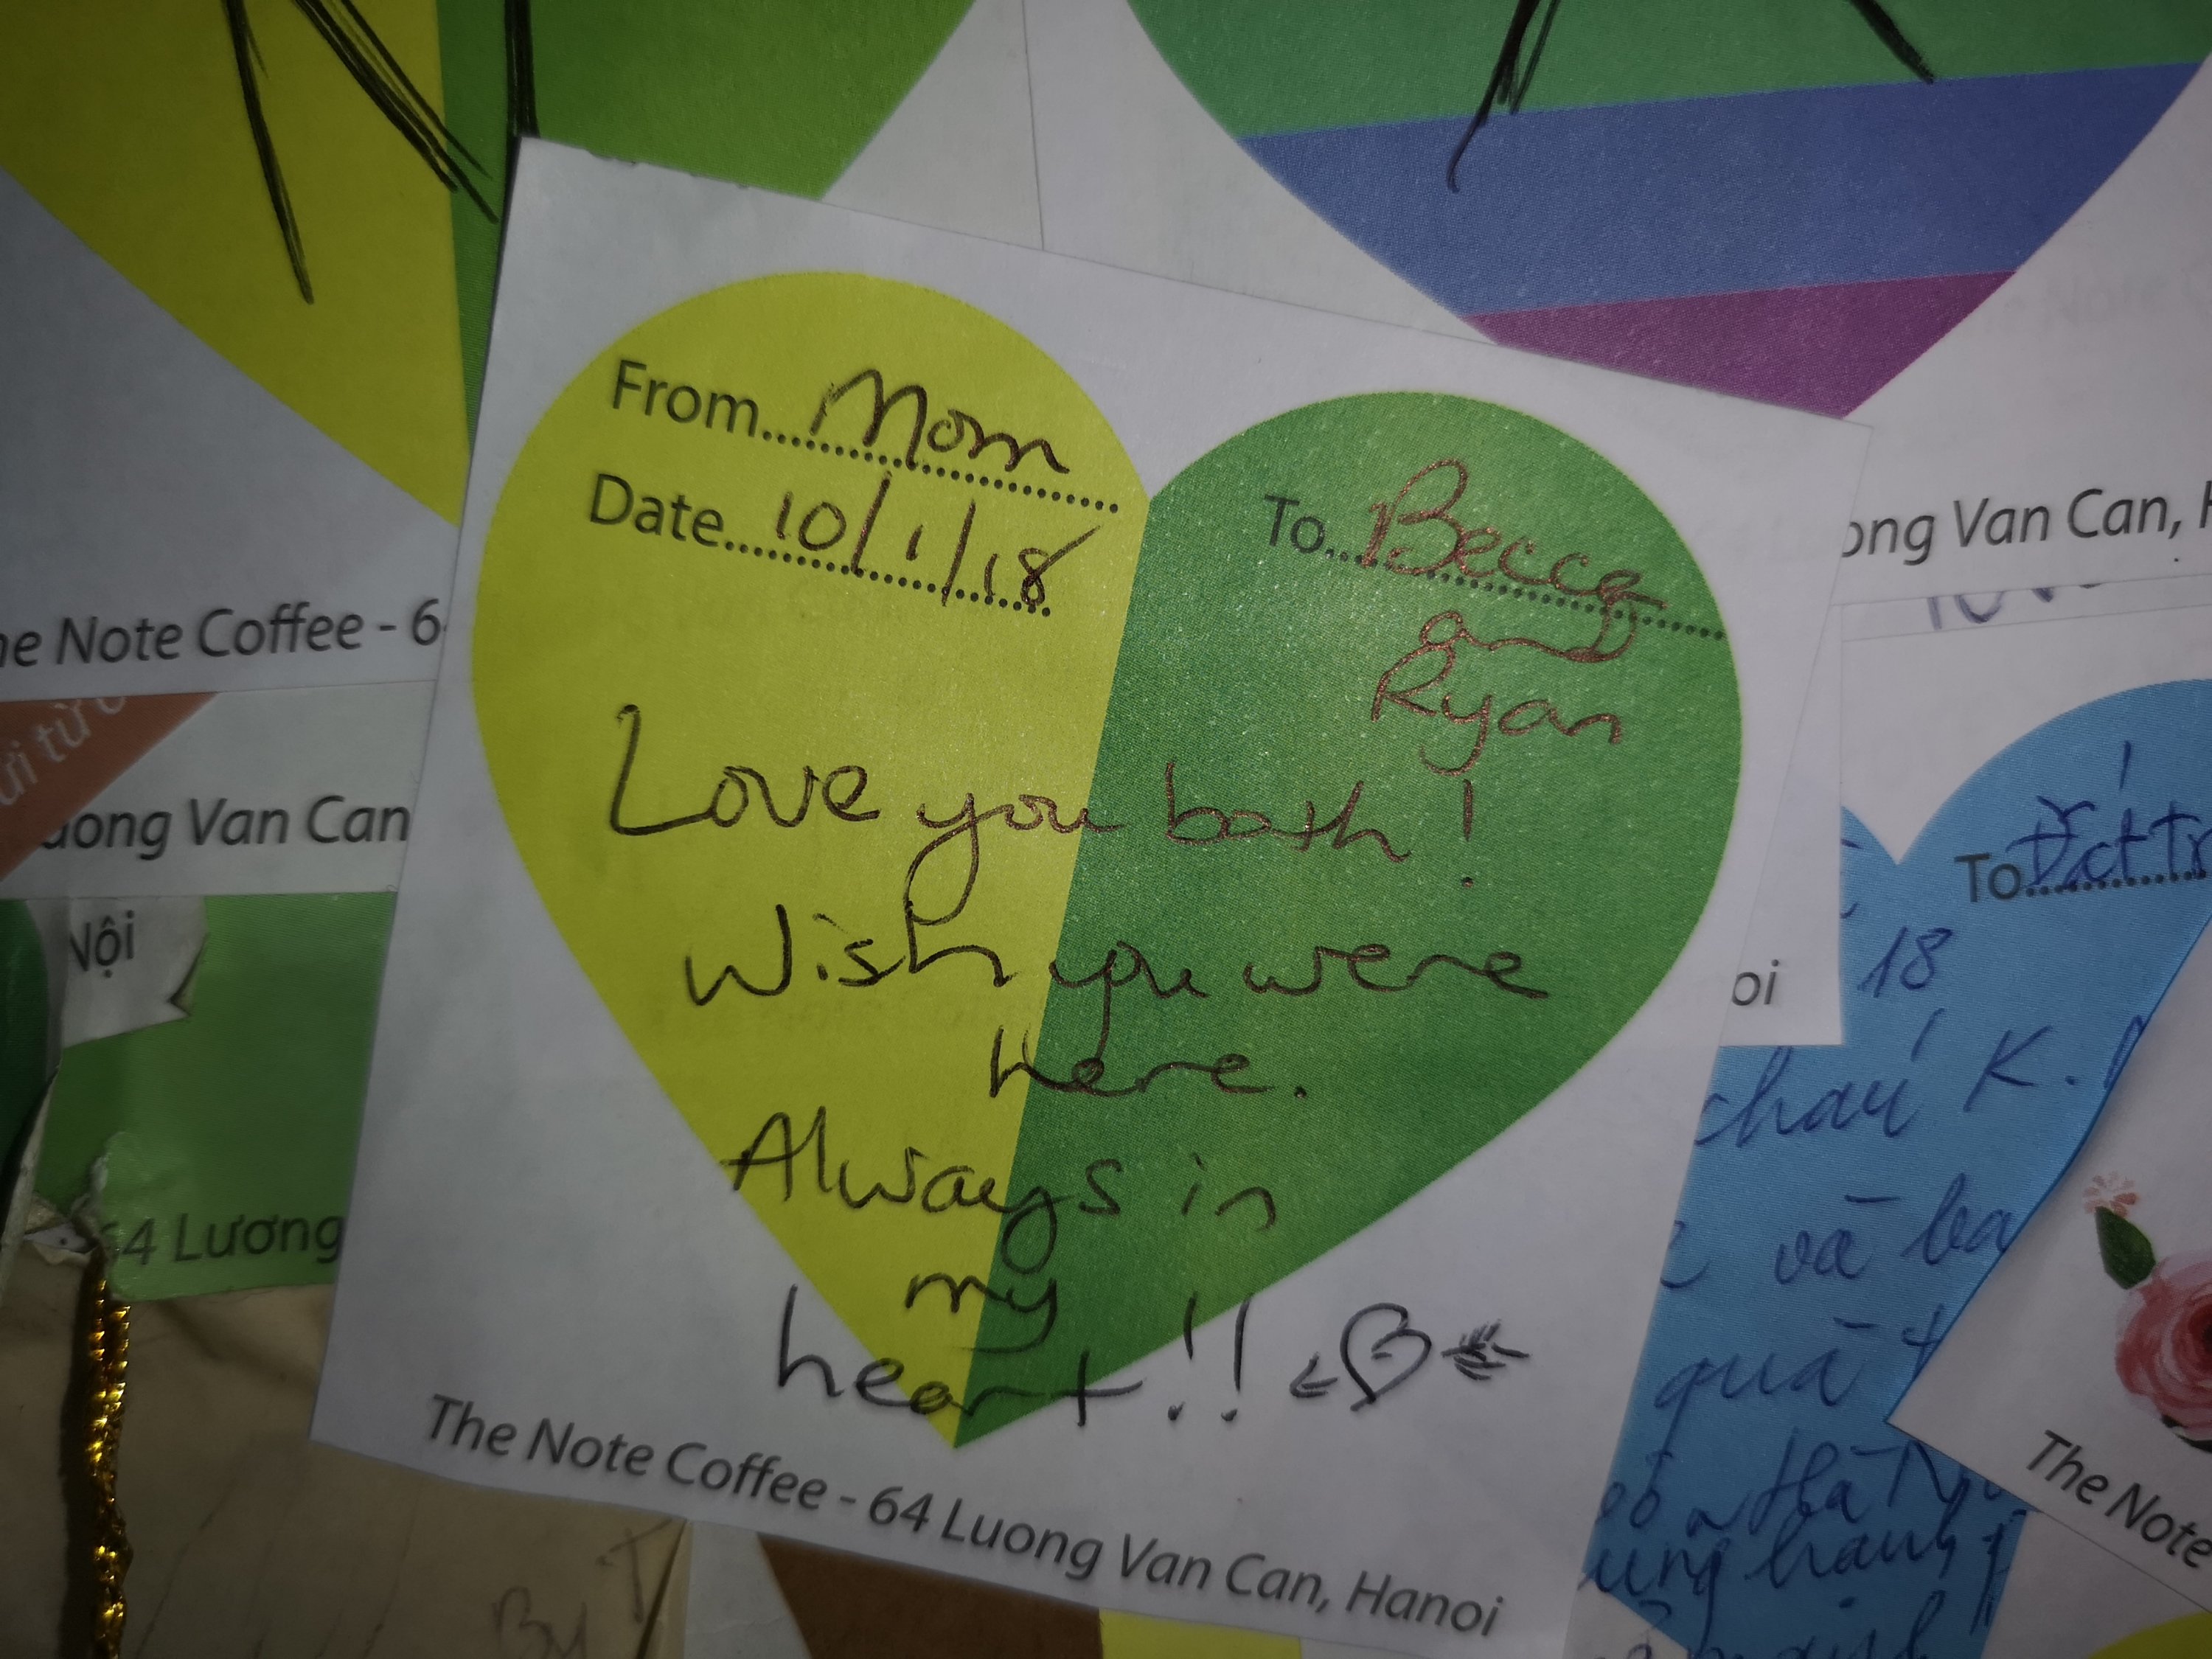 From Mom
Date 10/1/18
To Becca
and
Ryan
Love you both!
Wish you were
here.
Always in
my
heart!!
The Note Coffee - 64 Luong Van Can, Hanoi
Note Coffee - 6
Van Can
Nội
64 Lương
By T
Van Can,
To
18
K.
và
quà
The Note